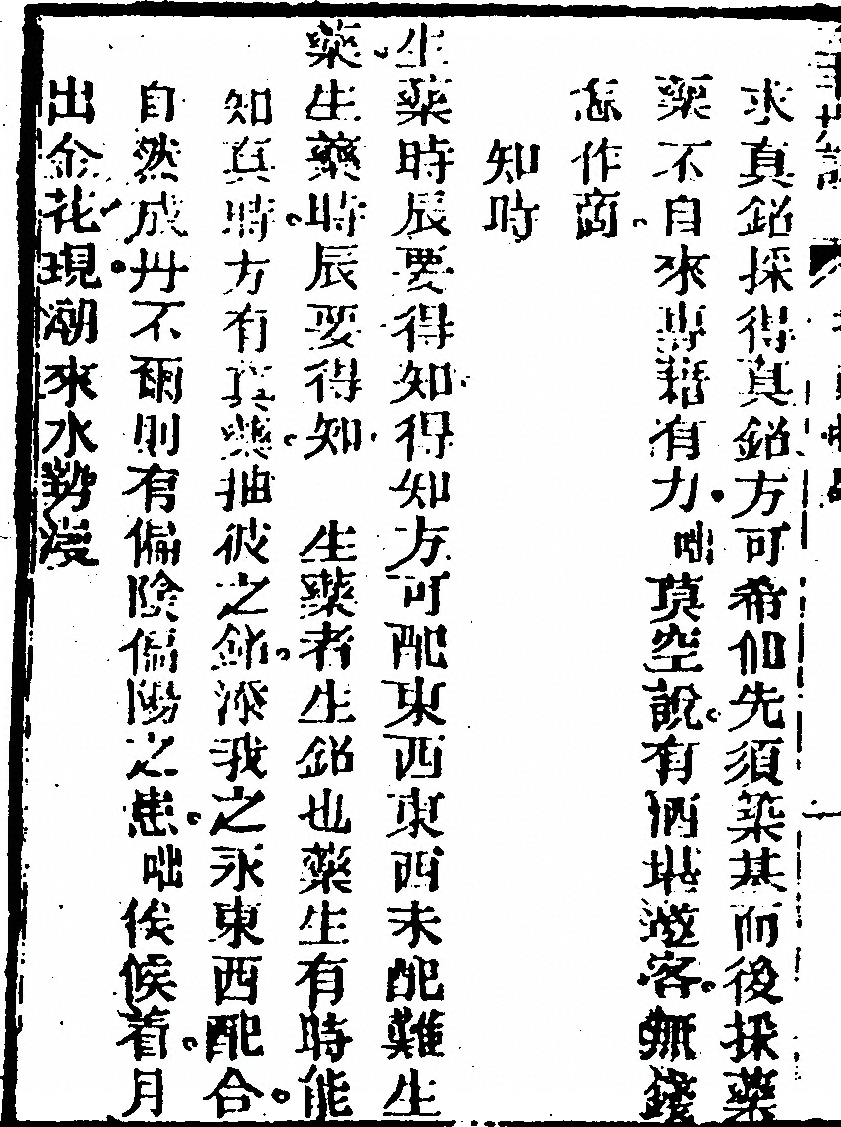 求真鉛採得真鉛方可希仙先須築基而後採藥
藥不自來專藉有力咄莫空說有酒堪邀客無錢
怎作商
知時
生藥時辰要得知得知方可配東西東西未配難生
藥生藥時辰要得知 生藥者生鉛也藥生有時能
知真時方有真藥抽彼之鉛添我之汞東西配合
自然成丹不爾則有偏陰偏陽之患咄俟候着月
出金花現潮來水勢漫